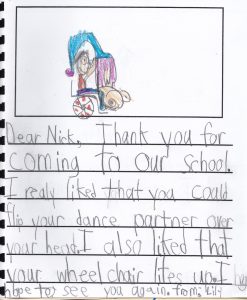 Dear Nick, Thank you for
coming to our school.
I realy liked that you could
flip your dance partner over
your head. I also liked that
your wheelchair lites up. I
hope to see you again. from: Lily